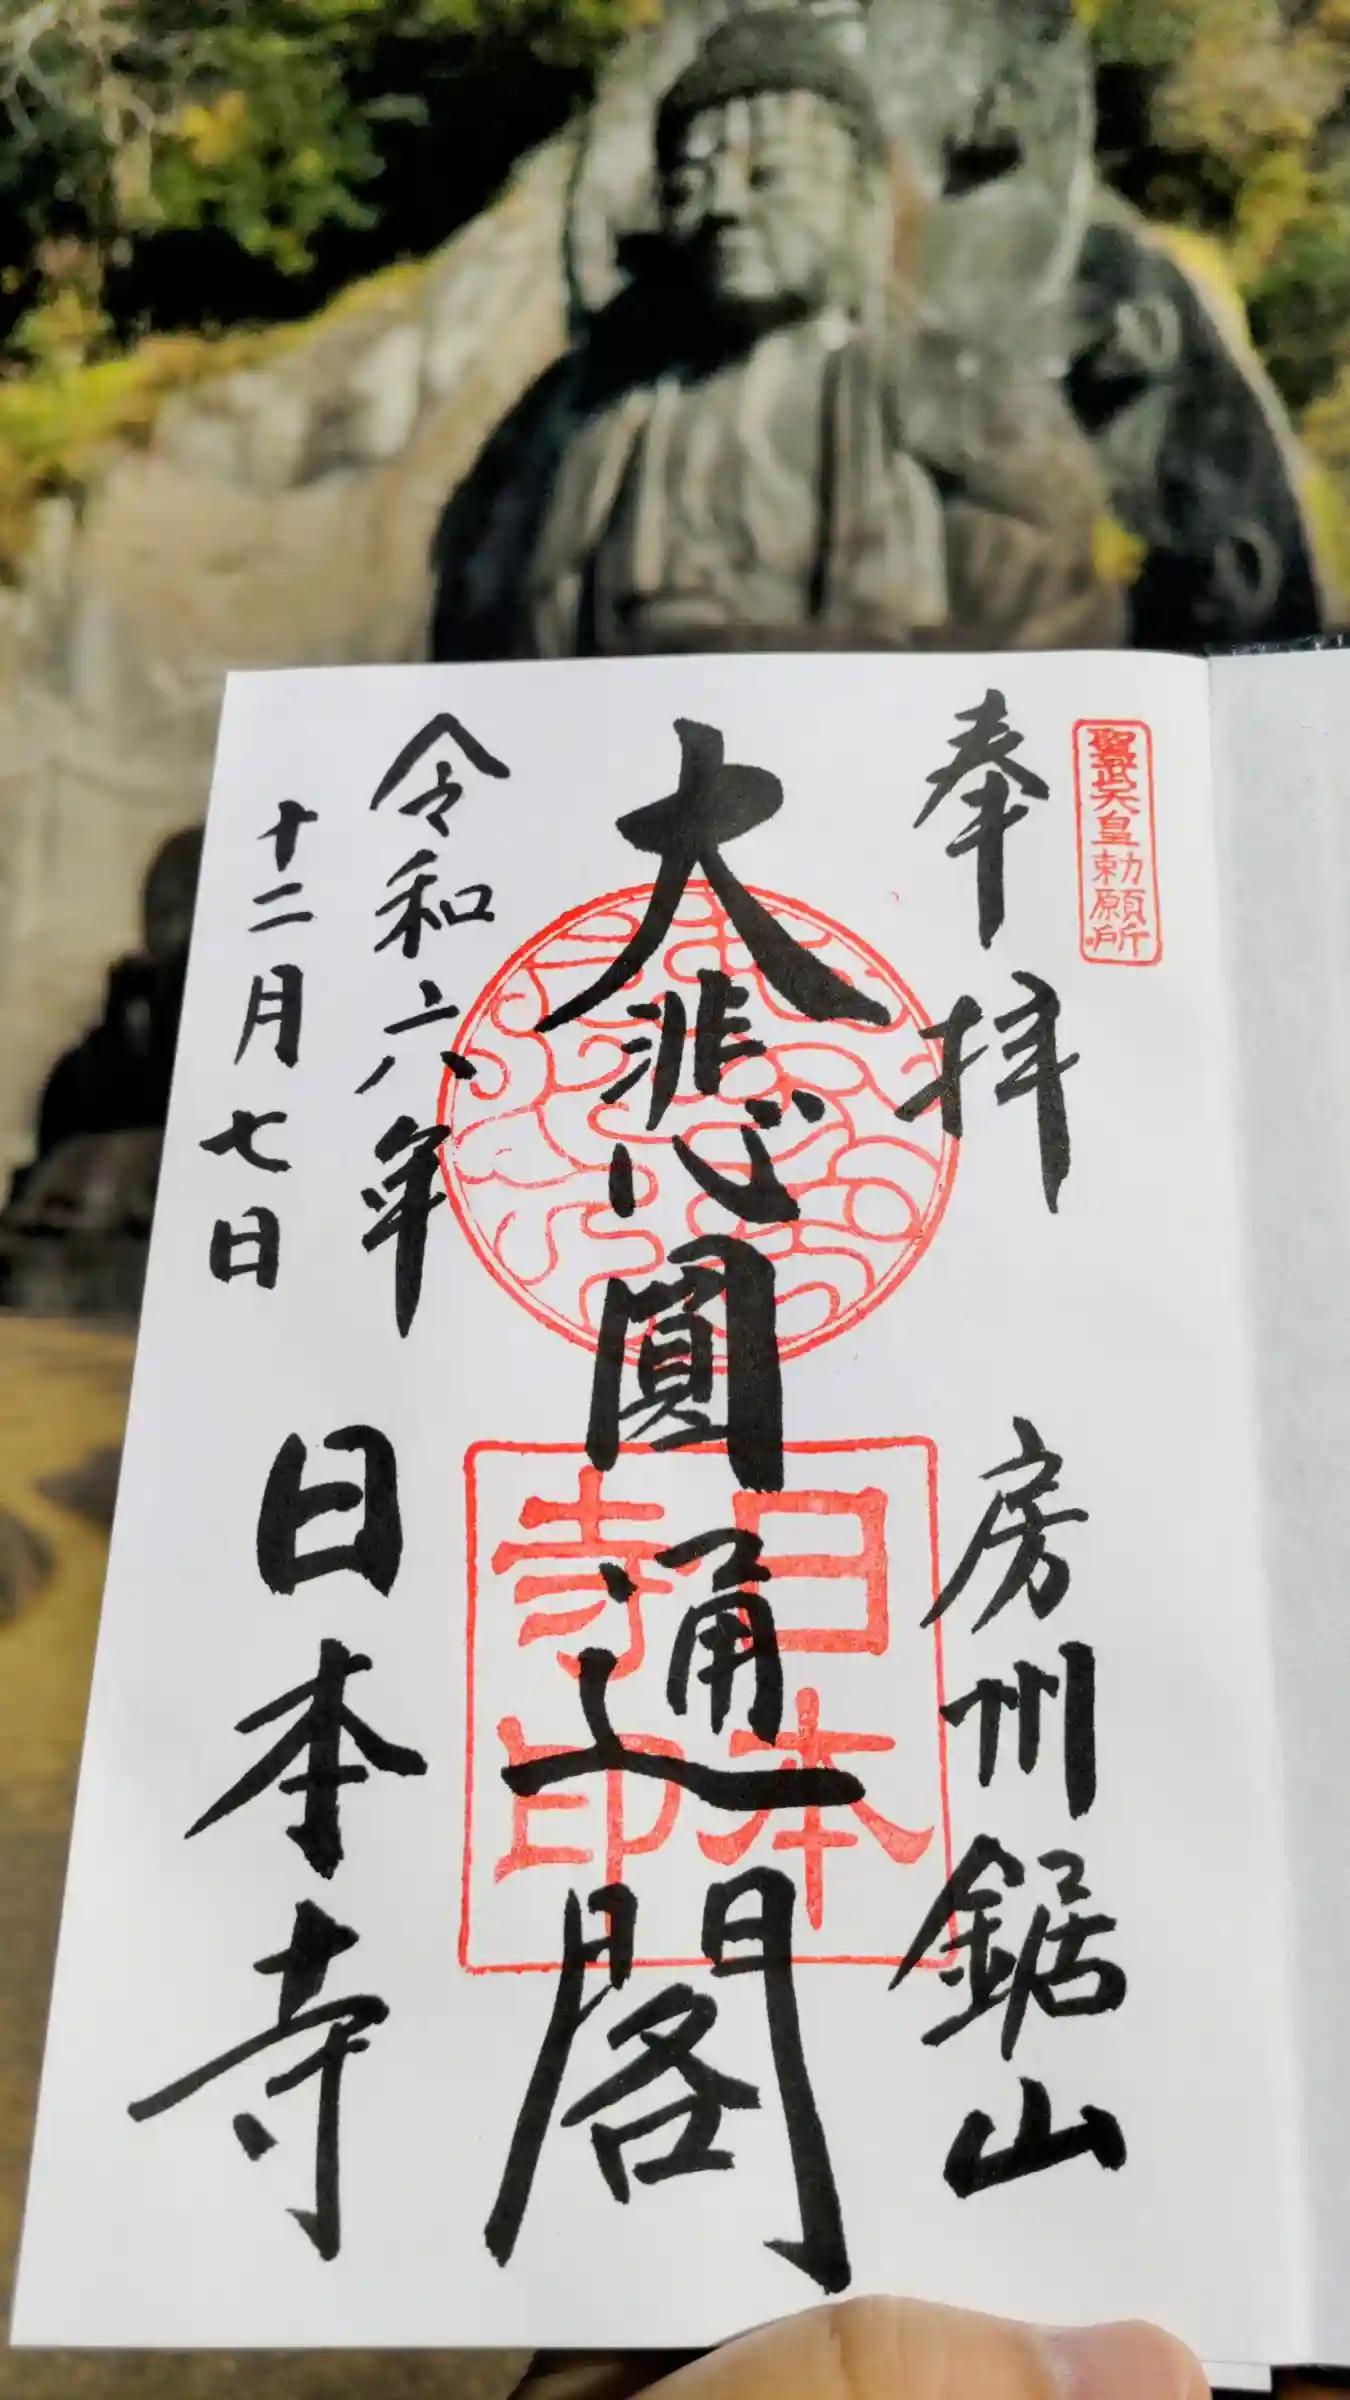 聖武天皇勅願所
奉拝
房州鋸山
大悲圓通閣
日本
寺印
令和六年
十二月七日
日本寺